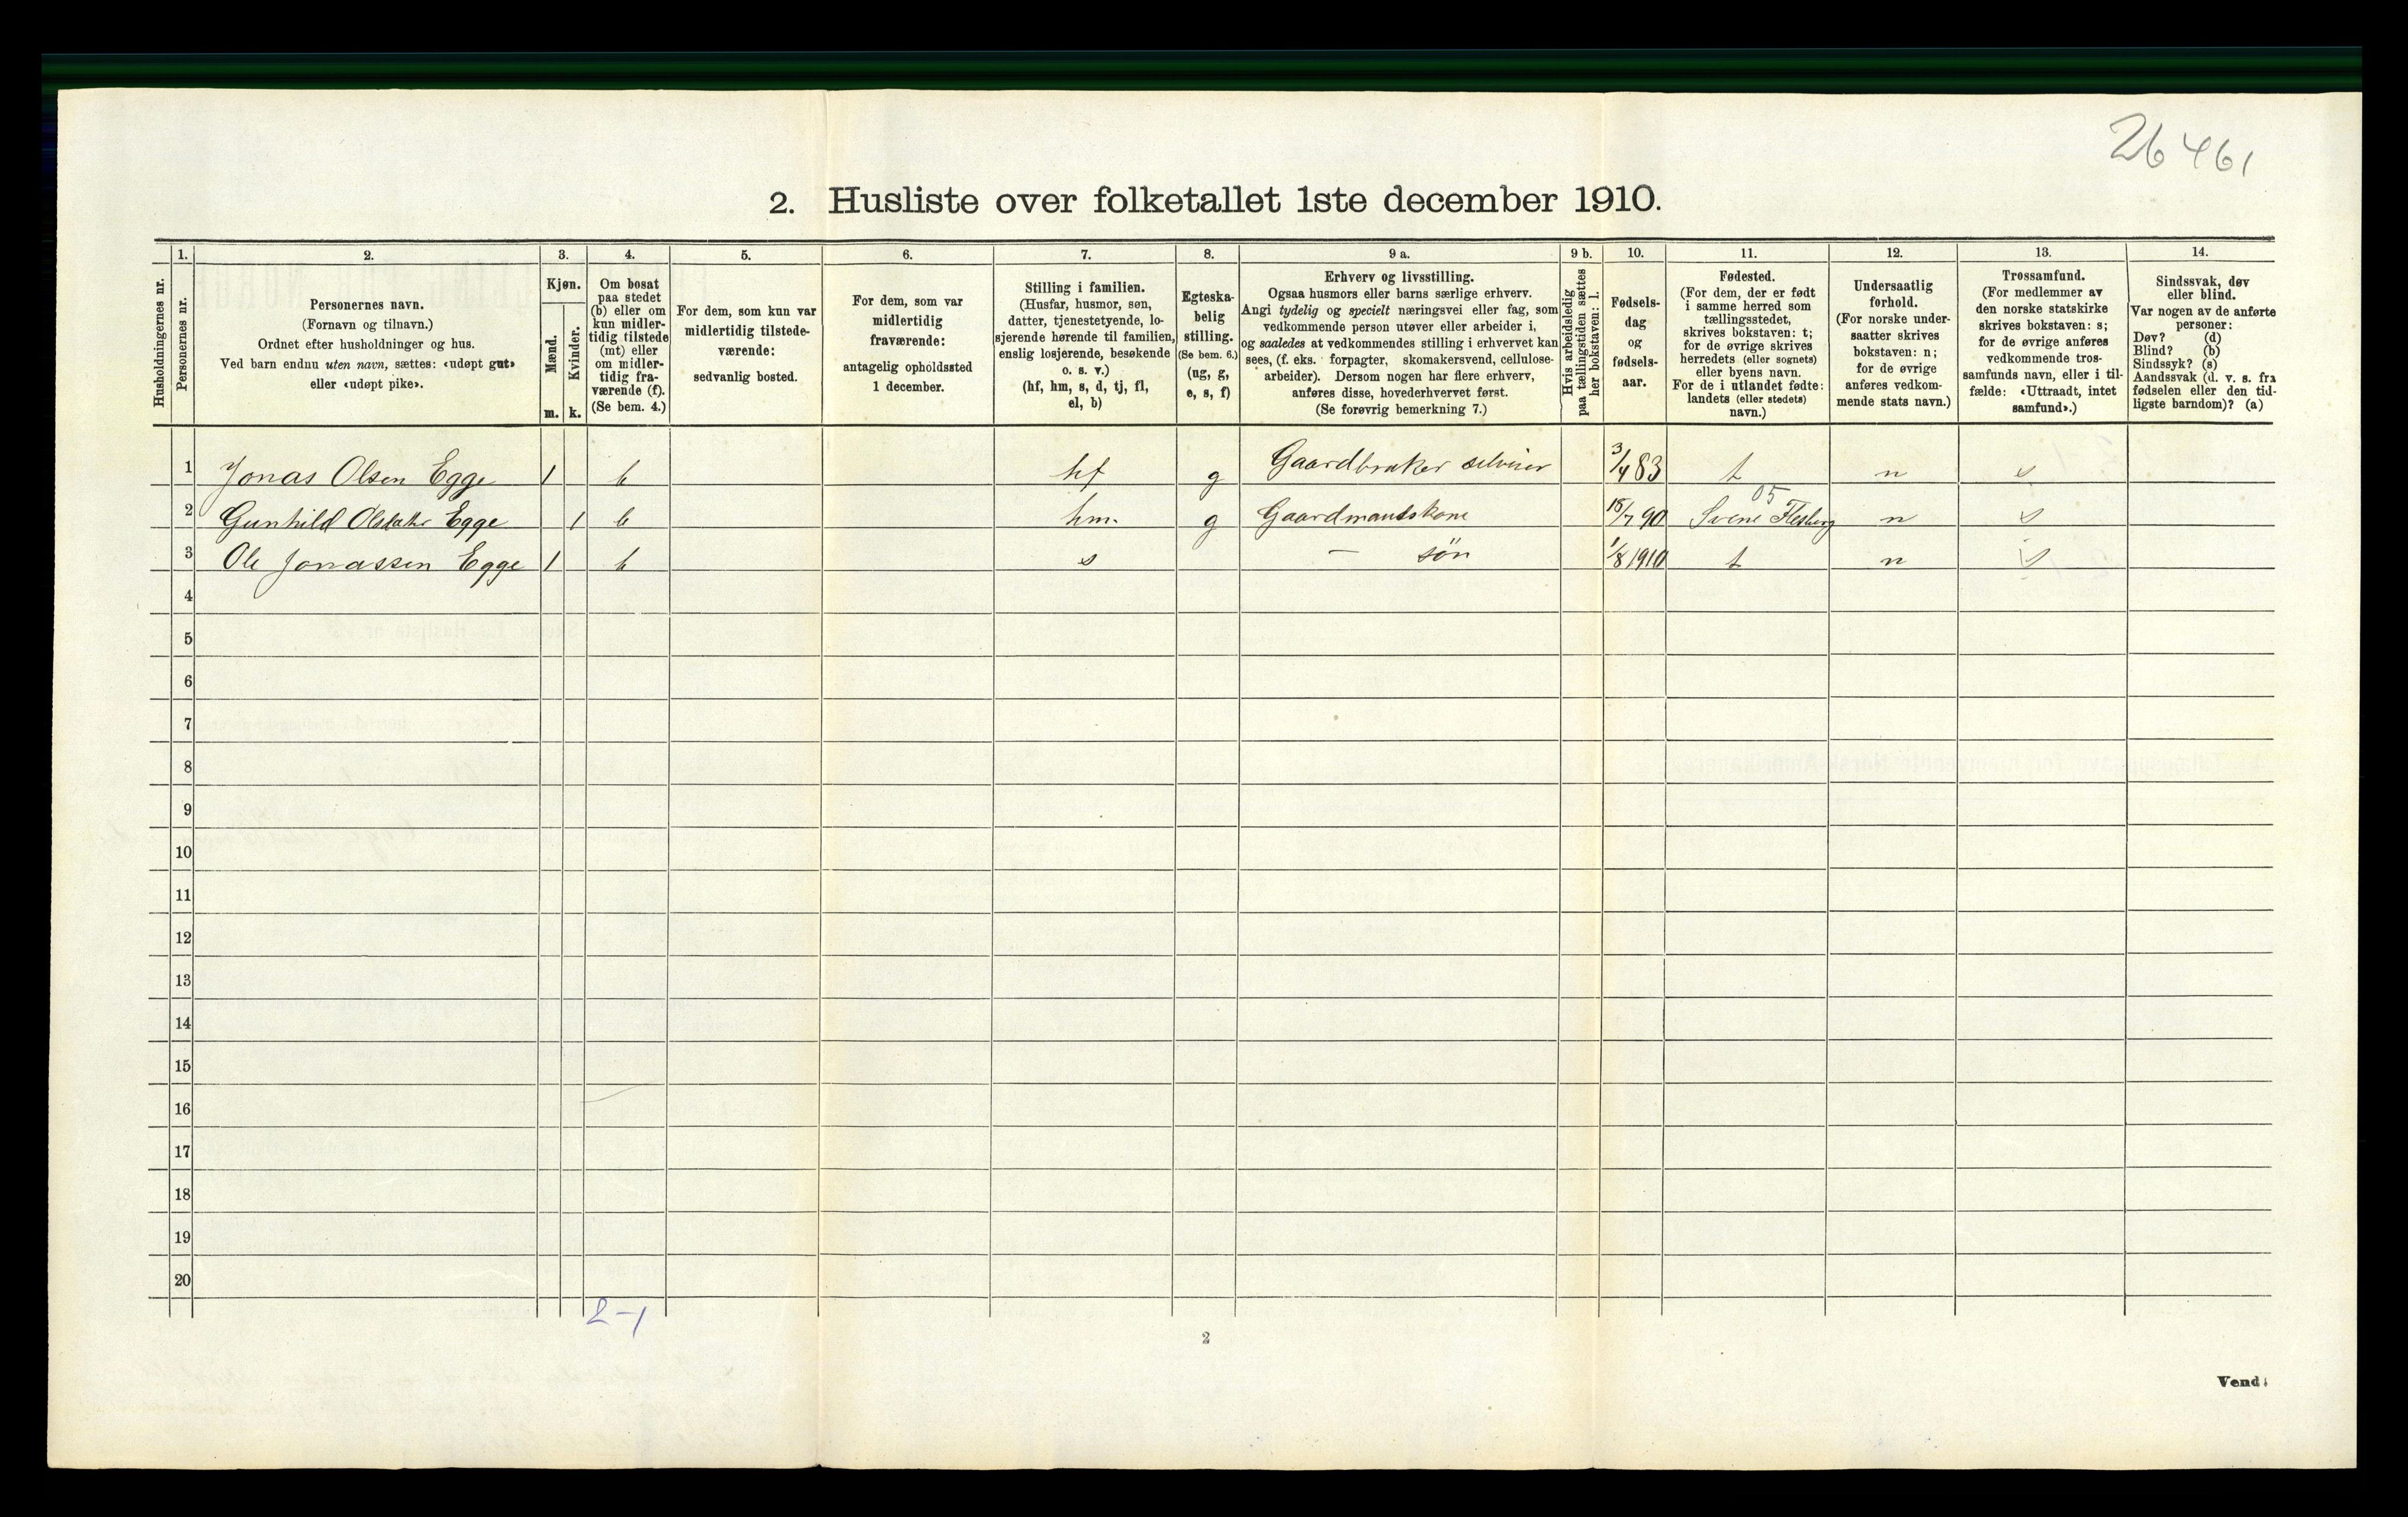 26 461
2. Husliste over folketallet 1ste december 1910.
Husholdningernes nr.
1.
Personernes nr.
2.
Personernes navn.
(Fornavn og tilnavn.)
Ordnet efter husholdninger og hus.
Ved barn endnu uten navn, sættes: «udøpt gut»
eller «udøpt pike».
3.
Kjøn.
Mænd.
m.
Kvinder.
k.
4.
Om bosat
paa stedet
(b) eller om
kun midler-
tidig tilstede
(mt) eller
om midler-
tidig fra-
værende (f).
(Se bem. 4.)
5.
For dem, som kun var
midlertidig tilstede-
værende:
sedvanlig bosted.
6.
For dem, som var
midlertidig
fraværende:
antagelig opholdssted
1 december.
7.
Stilling i familien.
(Husfar, husmor, søn,
datter, tjenestetyende, lo-
sjerende hørende til familien,
enslig losjerende, besøkende
o. s. v.)
(hf, hm, s, d, tj, fl,
el, b)
8.
Egteska-
belig
stilling.
(Se bem. 6.)
(ug, g,
e, s, f)
9 a.
Erhverv og livsstilling.
Ogsaa husmors eller barns særlige erhverv.
Angi tydelig og specielt næringsvei eller fag, som
vedkommende person utøver eller arbeider i,
og saaledes at vedkommendes stilling i erhvervet kan
sees, (f. eks. forpagter, skomakersvend, cellulose-
arbeider). Dersom nogen har flere erhverv,
anføres disse, hovederhvervet først.
(Se forøvrig bemerkning 7.)
9 b.
Hvis arbeidsledig
paa tællingstiden sættes
her bokstaven: l.
10.
Fødsels-
dag
og
fødsels-
aar.
11.
Fødested.
(For dem, der er født
i samme herred som
tællingsstedet,
skrives bokstaven: t;
for de øvrige skrives
herredets (eller sognets)
eller byens navn.
For de i utlandet fødte:
landets (eller stedets)
navn.)
12.
Undersaatlig
forhold.
(For norske under-
saatter skrives
bokstaven: n;
for de øvrige
anføres vedkom-
mende stats navn.)
13.
Trossamfund.
(For medlemmer av
den norske statskirke
skrives bokstaven: s;
for de øvrige anføres
vedkommende tros-
samfunds navn, eller i til-
fælde: «Uttraadt, intet
samfund».)
14.
Sindssvak, døv
eller blind.
Var nogen av de anførte
personer:
Døv? (d)
Blind? (b)
Sindssyk? (s)
Aandssvak (d. v. s. fra
fødselen eller den tid-
ligste barndom)? (a)
1 Jonas Olsen Egge 1 b hf g Gaardbruker selveier 3/4 83 t n s
05
2 Gunhild Olsdatter Egge 1 b hm. g Gaardmandskone 18/7 90 Svene Flesberg n s
3 Ole Jonassen Egge 1 b s — søn 1/8 1910 t n s
4
5
6
7
8
9
10
11
12
13
14
15
16
17
18
19
20
2-1
2
Vend!